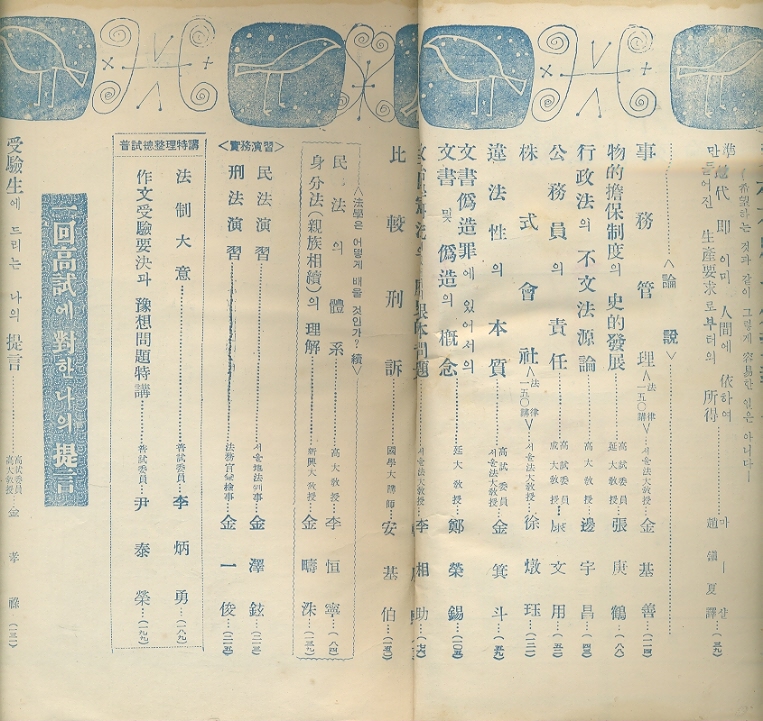 만들어진 生産要求로부터의 所得
<論說>
事務管理 <法律一五〇講> 서울法大敎授 金基善…(二四)
物的擔保制度의 史的發展 高試委員 延大敎授 張庚鶴…(八〇)
行政法의 不文法源論 高大敎授 邊宇昌
公務員의 責任 高試委員 成大敎授 文用
株式會社 <法律一五〇講> 서울法大敎授 徐燉珏…(三二)
違法性의 本質 高試委員 서울法大敎授 金箕斗…(五九)
文書僞造罪에 있어서의
文書 및 僞造의 槪念 延大敎授 鄭榮錫…(一〇五)
서울法大敎授 李相助…(七六)
比較刑訴 國學大講師 安基伯
<法學은 어떻게 배울 것인가? 續>
民法의 體系 高大敎授 李恒寧…(八四)
身分法(親族相續)의 理解 新興大敎授 金疇洙
<實務演習>
民法演習 서울地法判事 金澤鉉
刑法演習 法務官 檢事 金一俊
普試總整理特講
法制大意 普試委員 李炳勇…(一八九)
作文受驗要決과 豫想問題特講 普試委員 尹泰榮…(一九九)
二回高試에 對한 나의 提言
受驗生에 드리는 나의 提言 高試委員 高大敎授 金孝祿…(一三一)